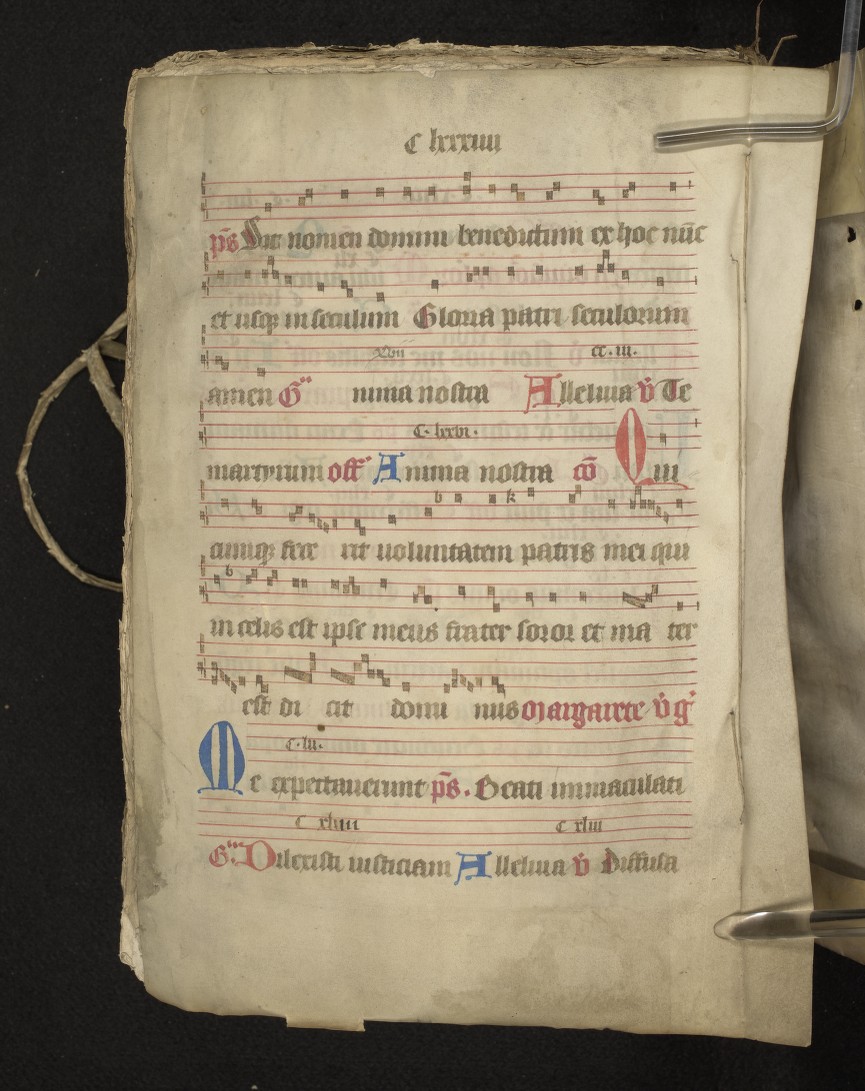 C lxxxiiii
p̄s Sit nomen domini benedictum ex hoc nūc
et usq; in seculum Gloria patri seculorum
xviii cc. iii.
amen G nima nostra Alleluia v̄ Te
C. lxxi.
martyrum off Anima nostra cō Qui
cumq; fece rit uoluntatem patris mei qui
in celis est ipse meus frater soror et ma ter
est di cit domi nus Margarete v̄g
C. lii.
Me expectauerunt p̄s. Beati immaculati
C xliiii C xliii
G Dilexisti iusticiam Alleluia v̄ Diffusa